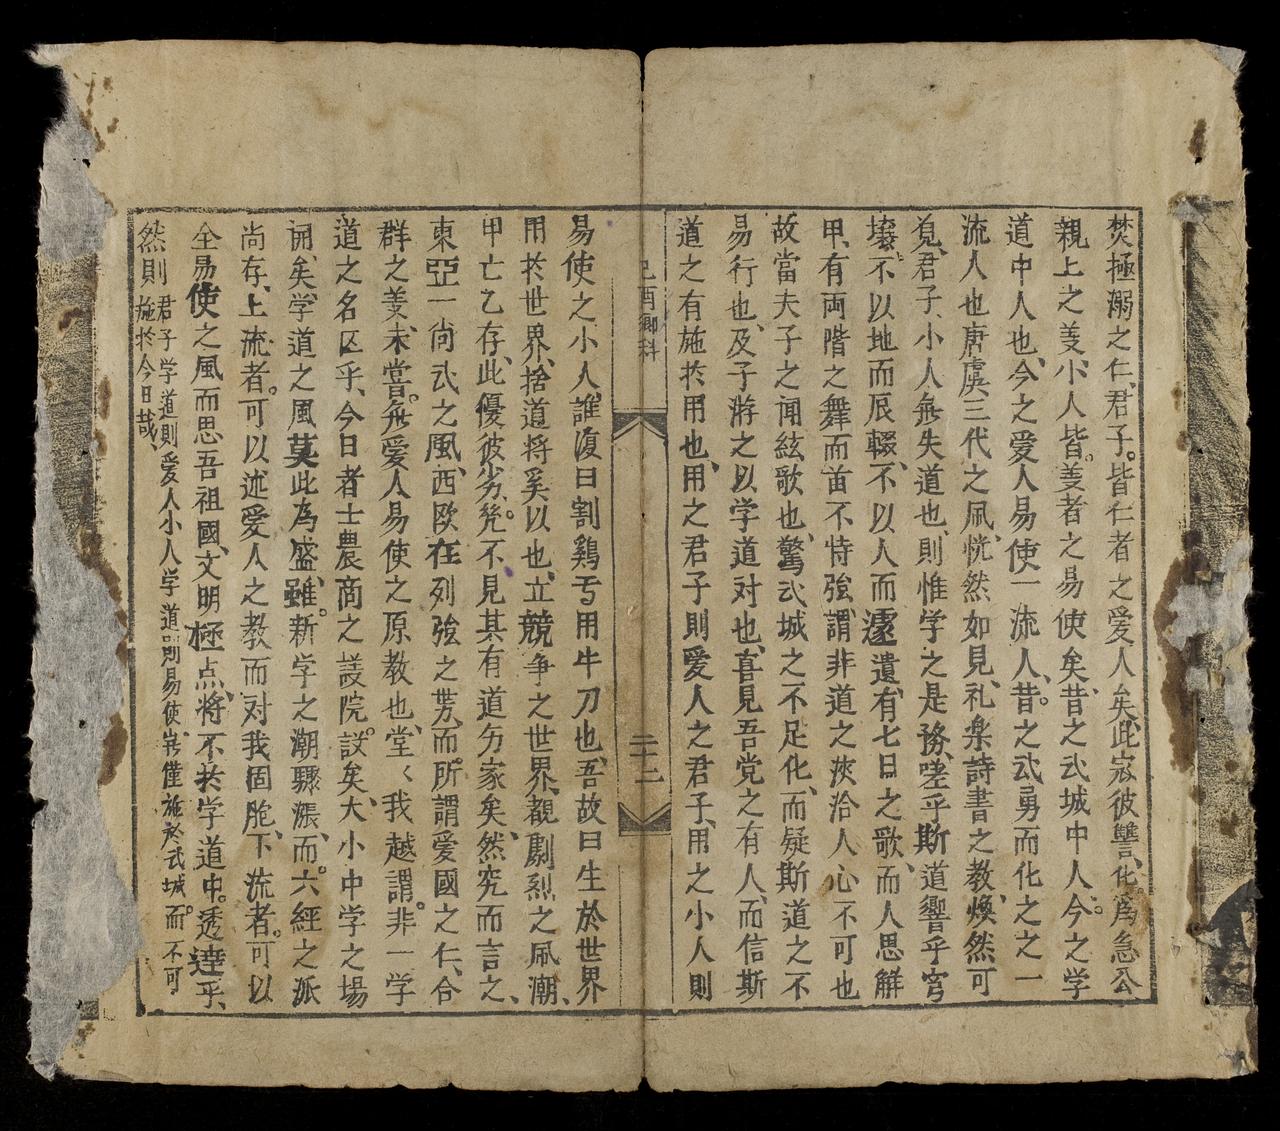 焚極溺之仁、君子。皆仁者之愛人矣、此寇彼讐、化。為急公
親上之羙、小人皆。羙者之易使矣、昔之武城中人。今之学
道中人也、今之愛人易使一流人、昔。之武勇而化之之一
流人也唐虞三代之風、恍然如見、礼楽詩書之教、煥然可
覓、君子小人無失道也、則惟学之是務、嗟乎斯道響乎穹
壌、不以地而辰輟、不以人而遽遺、有七日之歌、而人思觧
甲、有両階之舞而苗不恃強、謂非道之浹洽人心不可也
故當夫子之闻絃歌也、驚武城之不足化、而疑斯道之不
易行也、及子游之以学道对也、喜見吾党之有人、而信斯
道之有施扵用也、用之君子則愛人之君子、用之小人則
己酉鄉科
二十二
易使之小人、誰復曰割鷄焉用牛刀也、吾故曰生於世界
用扵世界、捨道将奚以也、立競争之世界、觀劇烈之風潮、
甲亡乙存、此優彼劣、凳。不見其有道方家矣、然究而言之、
東亞一尚武之風、西欧在列強之势、而。所謂愛國之仁、合
群之羙、未甞。無愛人易使之原教也、堂〻我越、謂。非一学
道之名区乎、今日者士農商之議院。設矣、大小中学之場
闹、矣、学道之風莫此為盛、雖。新学之潮驟漲、而。六經之派
尚存、上流者。可以述愛人之教而对我固胞、下流者。可以
全易使之風而思吾祖國、文明極点、将不扵学道中。透達乎、
然則君子学道則愛人小人学道則易使、岂僅施於武城。而不可
施扵今日哉、